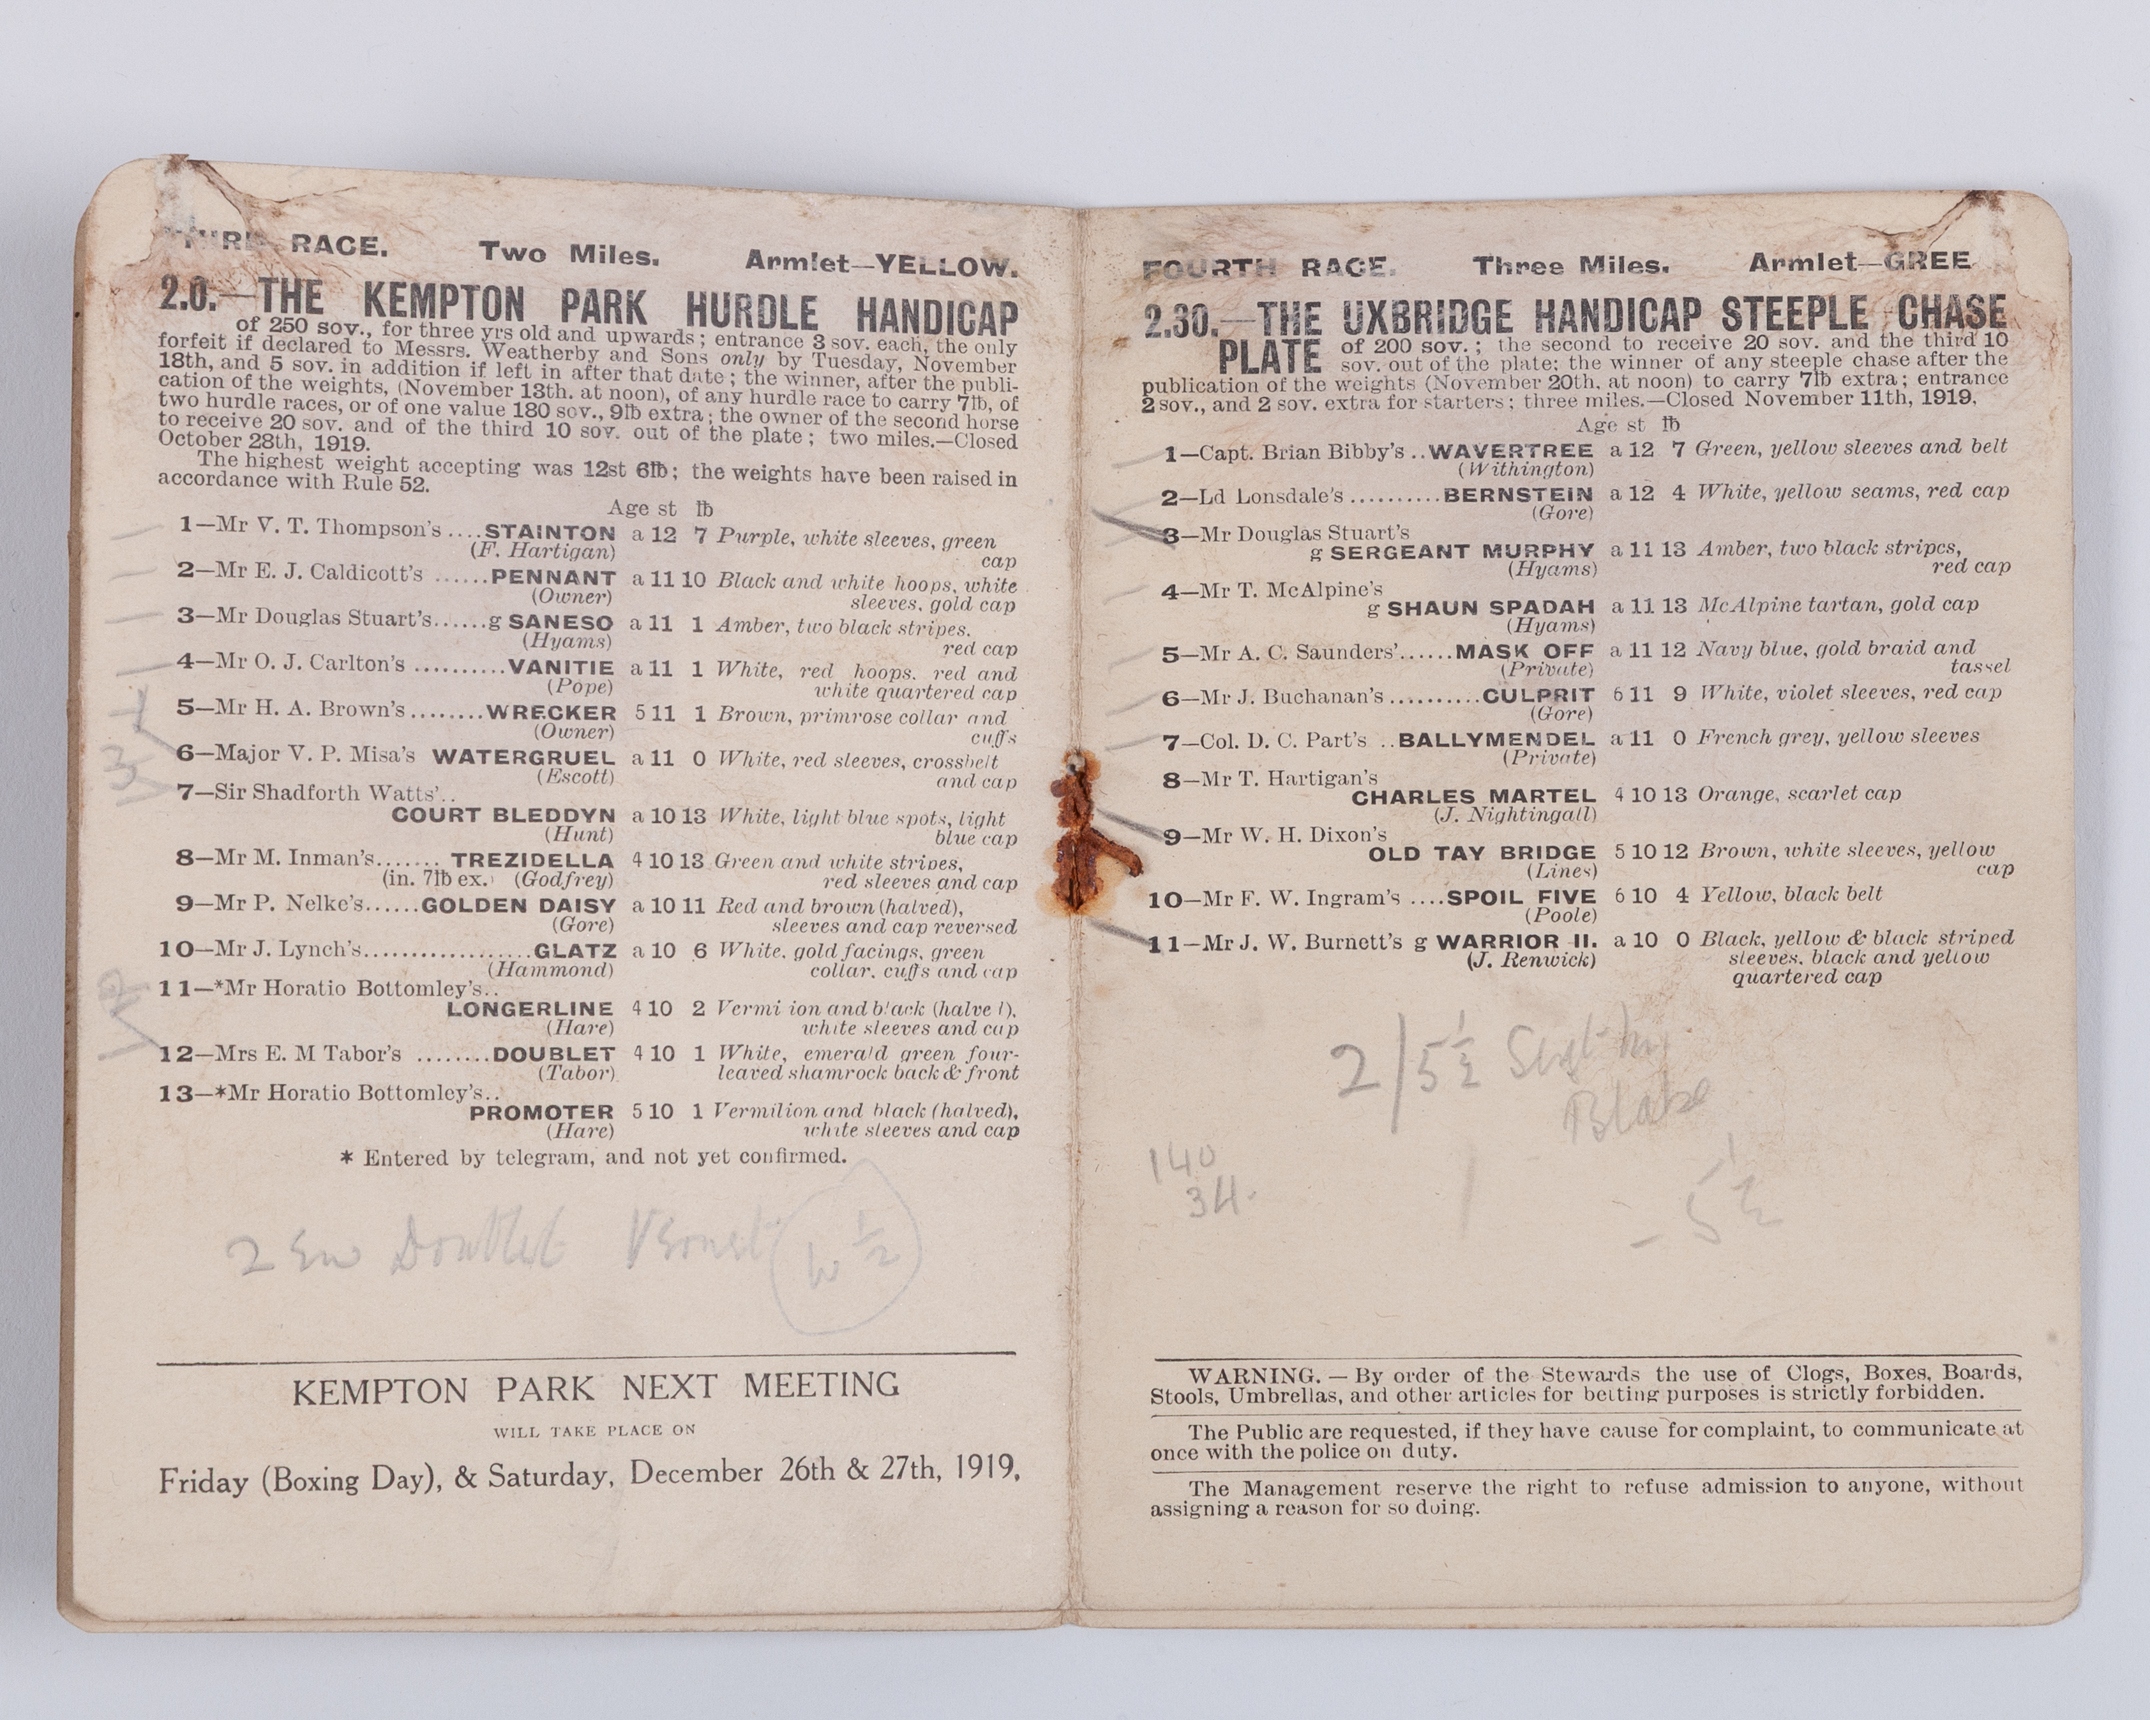 THIRD RACE. Two Miles. Armlet—YELLOW.
2.0.—THE KEMPTON PARK HURDLE HANDICAP
of 250 sov., for three yrs old and upwards; entrance 3 sov. each, the only
forfeit if declared to Messrs. Weatherby and Sons only by Tuesday, November
18th, and 5 sov. in addition if left in after that date; the winner, after the publi-
cation of the weights, (November 13th. at noon), of any hurdle race to carry 7lb, of
two hurdle races, or of one value 180 sov., 9lb extra; the owner of the second horse
to receive 20 sov. and of the third 10 sov. out of the plate; two miles.—Closed
October 28th, 1919.
The highest weight accepting was 12st 6lb; the weights have been raised in
accordance with Rule 52.
Age st lb
1—Mr V. T. Thompson's ....STAINTON a 12 7 Purple, white sleeves, green
(F. Hartigan) cap
2—Mr E. J. Caldicott's ......PENNANT a 11 10 Black and white hoops, white
(Owner) sleeves, gold cap
3—Mr Douglas Stuart's......g SANESO a 11 1 Amber, two black stripes.
(Hyams) red cap
4—Mr O. J. Carlton's ..........VANITIE a 11 1 White, red hoops. red and
(Pope) white quartered cap
5—Mr H. A. Brown's........WRECKER 5 11 1 Brown, primrose collar and
(Owner) cuffs
6—Major V. P. Misa's WATERGRUEL a 11 0 White, red sleeves, crossbelt
(Escott) and cap
7—Sir Shadforth Watts'..
COURT BLEDDYN a 10 13 White, light blue spots, light
(Hunt) blue cap
8—Mr M. Inman's....... TREZIDELLA 4 10 13 Green and white stripes,
(in. 7lb ex.) (Godfrey) red sleeves and cap
9—Mr P. Nelke's......GOLDEN DAISY a 10 11 Red and brown (halved),
(Gore) sleeves and cap reversed
10—Mr J. Lynch's..................GLATZ a 10 6 White, gold facings, green
(Hammond) collar, cuffs and cap
11—*Mr Horatio Bottomley's..
LONGERLINE 4 10 2 Vermi ion and black (halve ),
(Hare) white sleeves and cap
12—Mrs E. M Tabor's ........DOUBLET 4 10 1 White, emerald green four-
(Tabor) leaved shamrock back & front
13—*Mr Horatio Bottomley's..
PROMOTER 5 10 1 Vermilion and black (halved),
(Hare) white sleeves and cap
* Entered by telegram, and not yet confirmed.
2 Ew Doublet
W ½
KEMPTON PARK NEXT MEETING
WILL TAKE PLACE ON
Friday (Boxing Day), & Saturday, December 26th & 27th, 1919,
FOURTH RACE. Three Miles. Armlet—GREE
2.30.—THE UXBRIDGE HANDICAP STEEPLE CHASE
PLATE of 200 sov.; the second to receive 20 sov. and the third 10
sov. out of the plate; the winner of any steeple chase after the
publication of the weights (November 20th, at noon) to carry 7lb extra; entrance
2 sov., and 2 sov. extra for starters; three miles.—Closed November 11th, 1919.
Age st lb
1—Capt. Brian Bibby's ..WAVERTREE a 12 7 Green, yellow sleeves and belt
(Withington)
2—Ld Lonsdale's ..........BERNSTEIN a 12 4 White, yellow seams, red cap
(Gore)
3—Mr Douglas Stuart's
g SERGEANT MURPHY a 11 13 Amber, two black stripes,
(Hyams) red cap
4—Mr T. McAlpine's
g SHAUN SPADAH a 11 13 McAlpine tartan, gold cap
(Hyams)
5—Mr A. C. Saunders'......MASK OFF a 11 12 Navy blue, gold braid and
(Private) tassel
6—Mr J. Buchanan's ..........CULPRIT 6 11 9 White, violet sleeves, red cap
(Gore)
7—Col. D. C. Part's ..BALLYMENDEL a 11 0 French grey, yellow sleeves
(Private)
8—Mr T. Hartigan's
CHARLES MARTEL 4 10 13 Orange, scarlet cap
(J. Nightingall)
9—Mr W. H. Dixon's
OLD TAY BRIDGE 5 10 12 Brown, white sleeves, yellow
(Lines) cap
10—Mr F. W. Ingram's ....SPOIL FIVE 6 10 4 Yellow, black belt
(Poole)
11—Mr J. W. Burnett's g WARRIOR II. a 10 0 Black, yellow & black striped
(J. Renwick) sleeves, black and yellow
quartered cap
2/5½
Blake
140
34.
- 5½
WARNING.—By order of the Stewards the use of Clogs, Boxes, Boards,
Stools, Umbrellas, and other articles for betting purposes is strictly forbidden.
The Public are requested, if they have cause for complaint, to communicate at
once with the police on duty.
The Management reserve the right to refuse admission to anyone, without
assigning a reason for so doing.